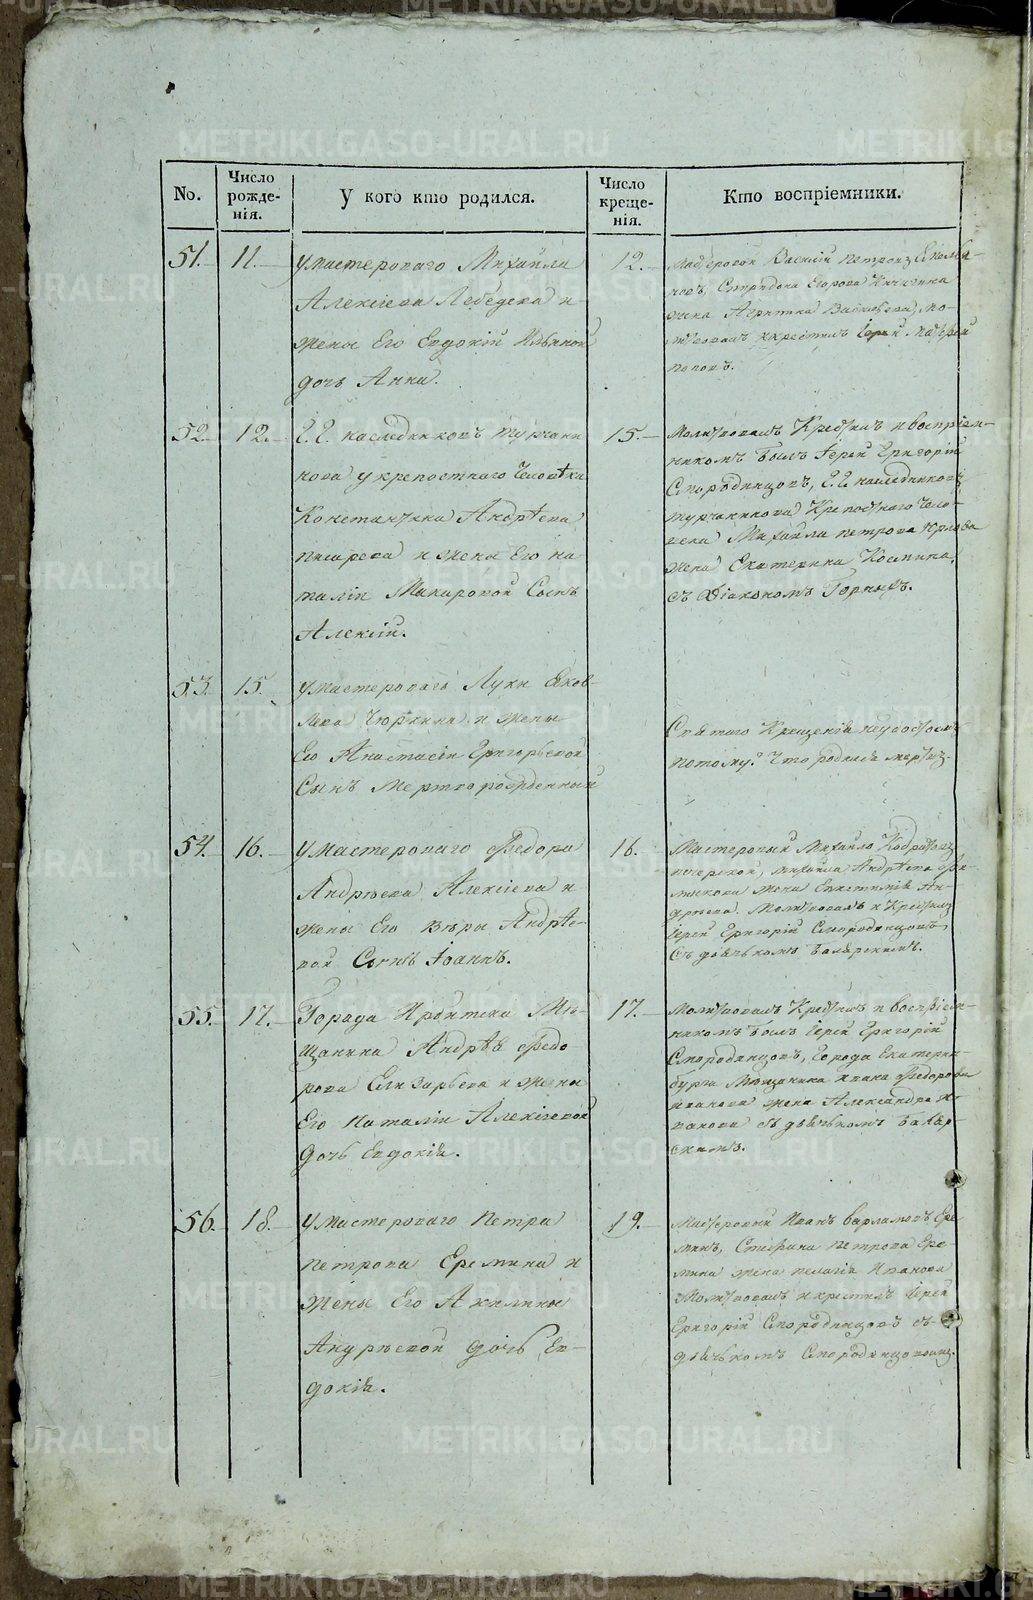 No.
Число рожде-нія.
У кого кто родился.
Число креще-нія.
Кто воспріемники.
51. 11.
умастероваго Михайла
Алексіева Лебедева и
жены Его Евдокіи Ильиной
дочь Анна.
12.
Мастеровой Василій Петровъ
Спиридона Егорова Кичигина
жена Агрипина молит-
вовалъ икрестилъ Іерей
поповъ.
52. 12.
Г. Г. наследниковъ турчани
нова укрепостнаго человѣка
Константина Андрѣева
писарева и жены Его на
таліи Макаровой Сынъ
Алексій.
15.
Молитвовалъ Крестилъ ивоспріем-
никомъ былъ Іерей Григорій
Смородинцовъ, Г. Г. наследниковъ
турчанинова Крепостнаго чело-
века Михаила петрова
жена Екатерина Космина,
съ Діакономъ Горныхъ.
53. 15
умастероваго Луки Яков-
лева Чюркина и жены
Его Анастасіи Григорьевой
Сынъ Мерторожденный
Святаго Крещенія неудостоенъ
потому что родился мертвъ.
54. 16.
умастероваго Федора
Андрѣева Алексіева и
жены Его Вѣры Андрѣе-
вой Сынъ Іоаннъ.
16.
Мастеровый Михайло
Михайла Андрѣева
жена Ан-
дрѣева. Молитвовалъ и Крестилъ
Іерей Григорій Смородинцовъ,
съ дьячькомъ
55. 17.
Города Ирбитска Мѣ-
щанина Андрѣя Федо-
рова Елизарьева и жены
Его Наталіи Алексіевой
дочь Евдокія.
17.
Молитвовалъ Крестилъ и воспріем-
никомъ былъ Іерей Григорій
Смородинцовъ, Города Екатерин-
бурга Мѣщанина ивана Федорова
иванова жена Александра и-
ванова съ дьячькомъ
56. 18.
умастероваго Петра
петрова Еремина и
жены Его Акилины
Андрѣевой дочь Ев-
докія.
19.
Мастеровый Иванъ Варламовъ Ере-
минъ, Стефана петрова Ере-
мина жена пелагія Иванова
Молитвовалъ икрестилъ Іерей
Григорій Смородинцовъ съ
дьячькомъ Смородинцовымъ.
METRIKI.GASO-URAL.RU